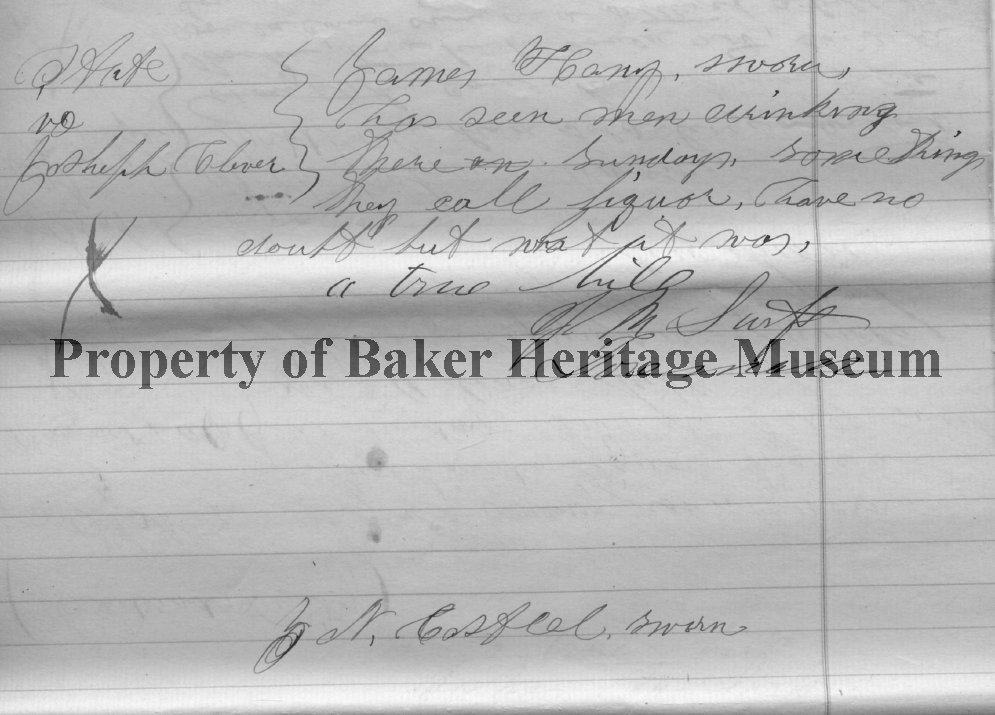 State
vs
Josheph Clever
James Hany, sworn,
has seen men drinking
there on sundays, something
they call liquor, have no
doubt but what it was,
a true bill
M Swift
Property of Baker Heritage Museum
J N, Casteel, sworn